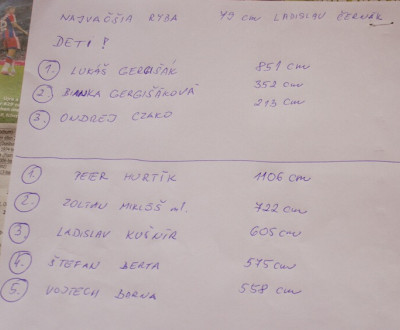 NAJVÄČŠIA RYBA 49 cm LADISLAV ČERNÁK
DETI!
1. LUKÁŠ GERGIŠÁK 851 cm
2. BIANKA GERGIŠÁKOVÁ 352 cm
3. ONDREJ CZAKO 213 cm
1. PETER HURTÍK 1106 cm
2. ZOLTAN MIKLÓŠ ml. 722 cm
3. LADISLAV KUŠNÍR 605 cm
4. ŠTEFAN BERTA 575 cm
5. VOJTECH BORNA 558 cm